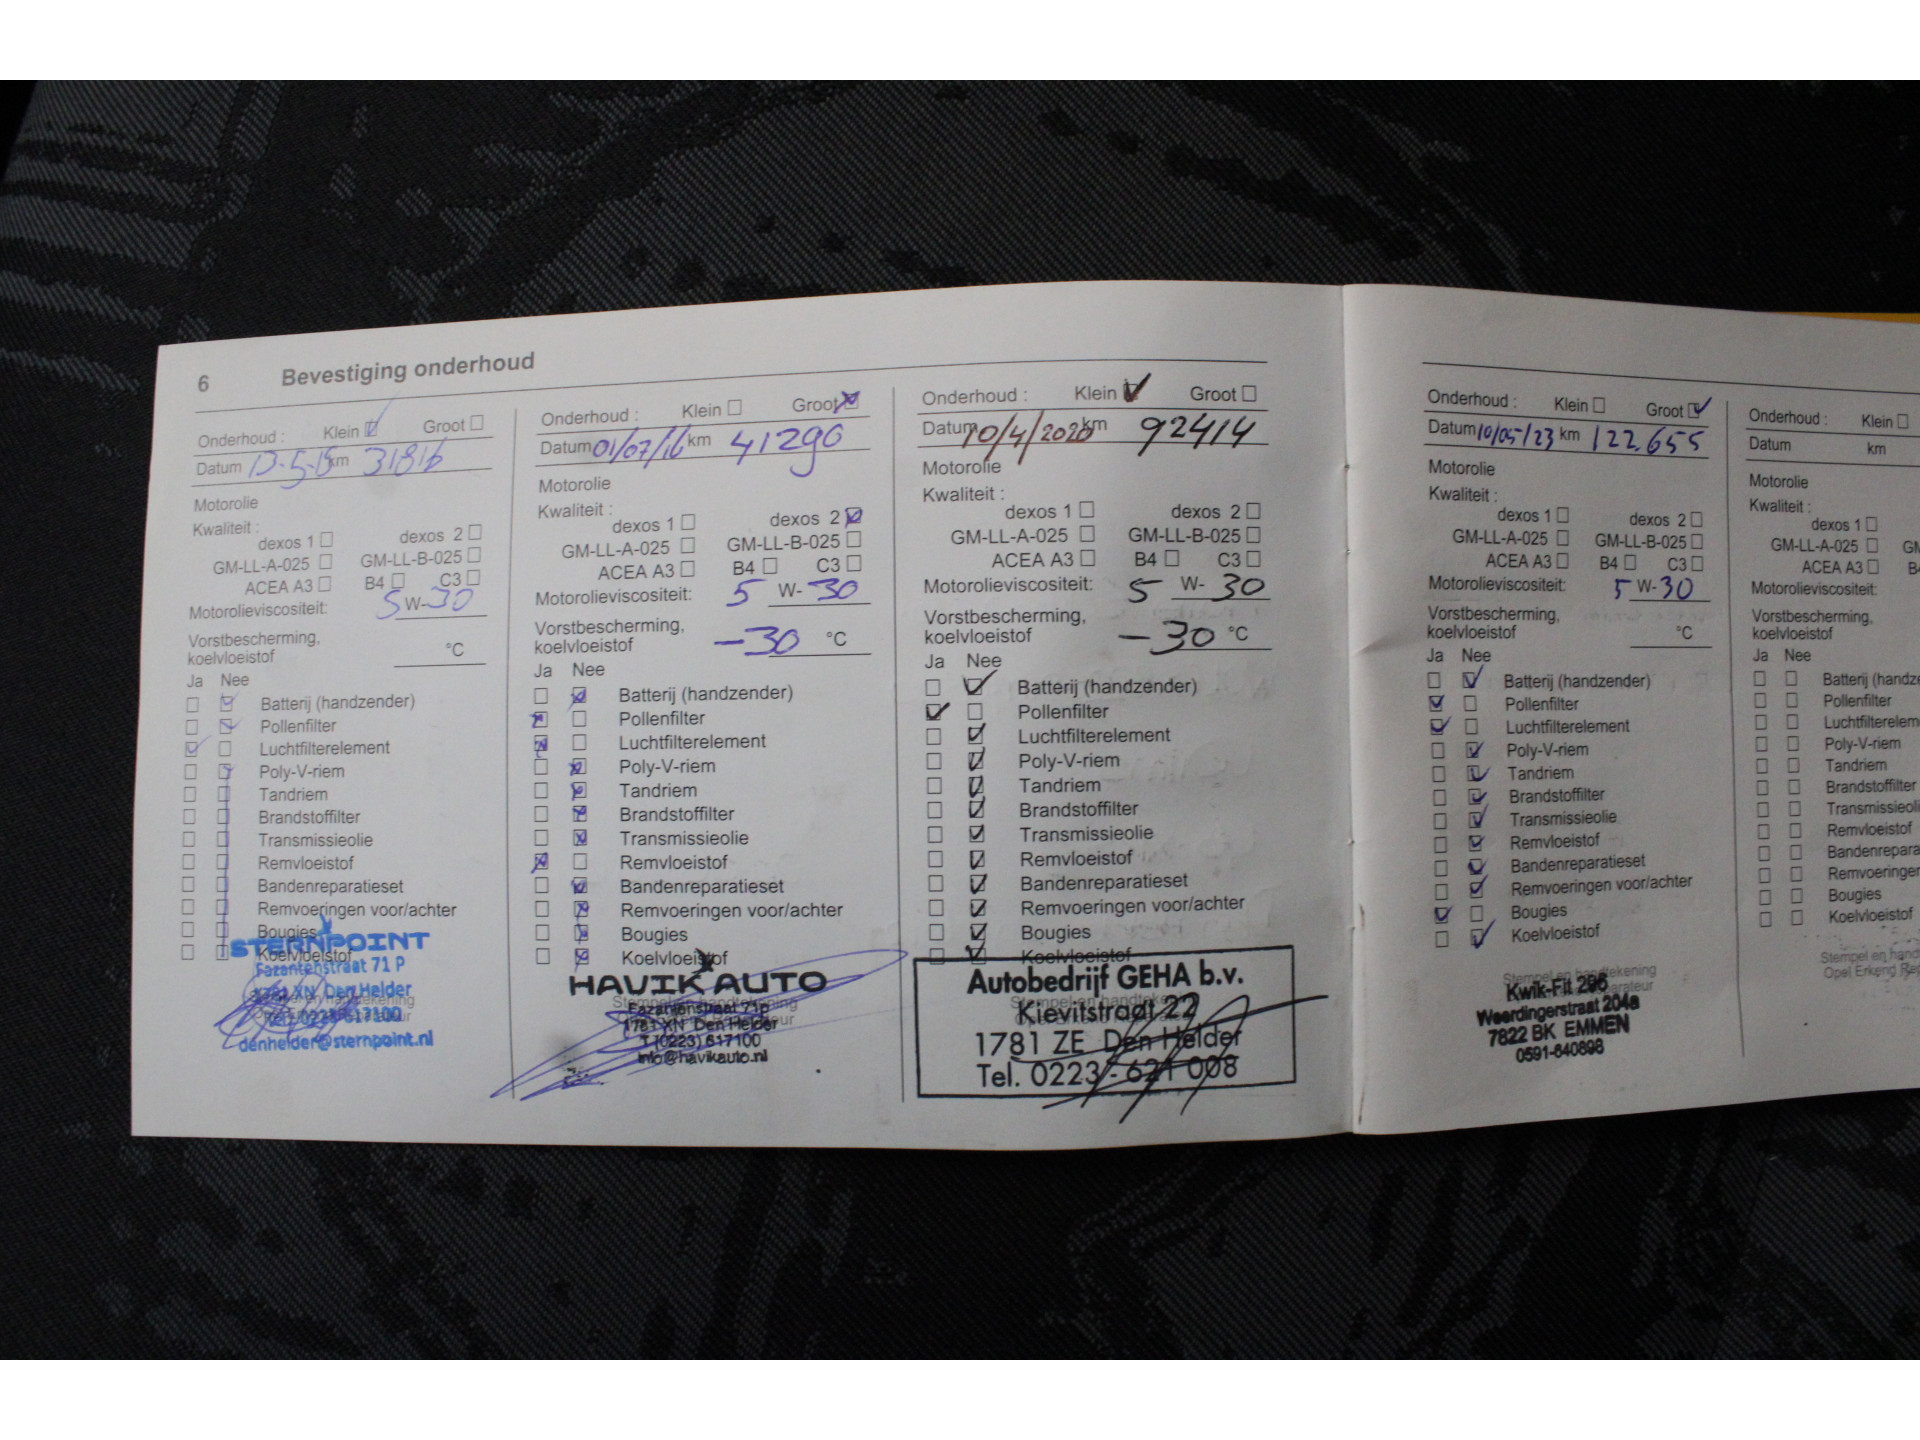 6 Bevestiging onderhoud
Onderhoud : Klein Groot
Datum km 31816
Motorolie
Kwaliteit :
dexos 1 dexos 2
GM-LL-A-025 GM-LL-B-025
ACEA A3 B4 C3
Motorolieviscositeit: 5 W-30
Vorstbescherming,
koelvloeistof °C
Ja Nee
Batterij (handzender)
Pollenfilter
Luchtfilterelement
Poly-V-riem
Tandriem
Brandstoffilter
Transmissieolie
Remvloeistof
Bandenreparatieset
Remvoeringen voor/achter
Bougies
Koelvloeistof
STERNPOINT
Fazantenstraat 71 P
1781 XN Den Helder
denhelder@sternpoint.nl
Onderhoud : Klein Groot
Datum 01/07/16 km 41290
Motorolie
Kwaliteit :
dexos 1 dexos 2
GM-LL-A-025 GM-LL-B-025
ACEA A3 B4 C3
Motorolieviscositeit: 5 W-30
Vorstbescherming,
koelvloeistof -30 °C
Ja Nee
Batterij (handzender)
Pollenfilter
Luchtfilterelement
Poly-V-riem
Tandriem
Brandstoffilter
Transmissieolie
Remvloeistof
Bandenreparatieset
Remvoeringen voor/achter
Bougies
Koelvloeistof
HAVIK AUTO
Stempel en handtekening
Fazantenstraat 71p
1781 XN Den Helder
T (0223) 617100
info@havikauto.nl
Onderhoud : Klein Groot
Datum 10/4/2020 km 92414
Motorolie
Kwaliteit :
dexos 1 dexos 2
GM-LL-A-025 GM-LL-B-025
ACEA A3 B4 C3
Motorolieviscositeit: 5 W-30
Vorstbescherming,
koelvloeistof -30 °C
Ja Nee
Batterij (handzender)
Pollenfilter
Luchtfilterelement
Poly-V-riem
Tandriem
Brandstoffilter
Transmissieolie
Remvloeistof
Bandenreparatieset
Remvoeringen voor/achter
Bougies
Koelvloeistof
Autobedrijf GEHA b.v.
Kievitstraat 22
1781 ZE Den Helder
Tel. 0223-621 008
Onderhoud : Klein Groot
Datum 10/05/23 km 122.655
Motorolie
Kwaliteit :
dexos 1 dexos 2
GM-LL-A-025 GM-LL-B-025
ACEA A3 B4 C3
Motorolieviscositeit: 5 W-30
Vorstbescherming,
koelvloeistof °C
Ja Nee
Batterij (handzender)
Pollenfilter
Luchtfilterelement
Poly-V-riem
Tandriem
Brandstoffilter
Transmissieolie
Remvloeistof
Bandenreparatieset
Remvoeringen voor/achter
Bougies
Koelvloeistof
Stempel en handtekening
Kwik-Fit 296
Weerdingerstraat 204a
7822 BK EMMEN
0591-640898
Onderhoud : Klein
Datum km
Motorolie
Kwaliteit :
dexos 1
GM-LL-A-025 GM
ACEA A3 B4
Motorolieviscositeit:
Vorstbescherming,
koelvloeistof
Ja Nee
Batterij (handze
Pollenfilter
Luchtfilterelem
Poly-V-riem
Tandriem
Brandstoffilter
Transmissieoli
Remvloeistof
Bandenrepara
Remvoeringen
Bougies
Koelvloeistof
Stempel en hand
Opel Erkend Rep